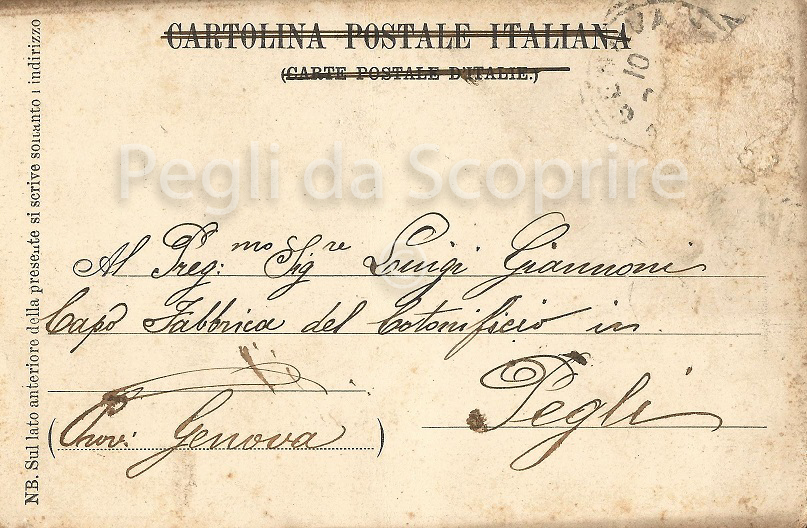 CARTOLINA POSTALE ITALIANA
(CARTE POSTALE D'ITALIE.)
10
Pegli da Scoprire
Al Preg: mo Sig re Luigi Giannoni
Capo Fabbrica del Cotonificio in
Pegli
(Prov: Genova)
NB. Sul lato anteriore della presente si scrive soltanto l indirizzo